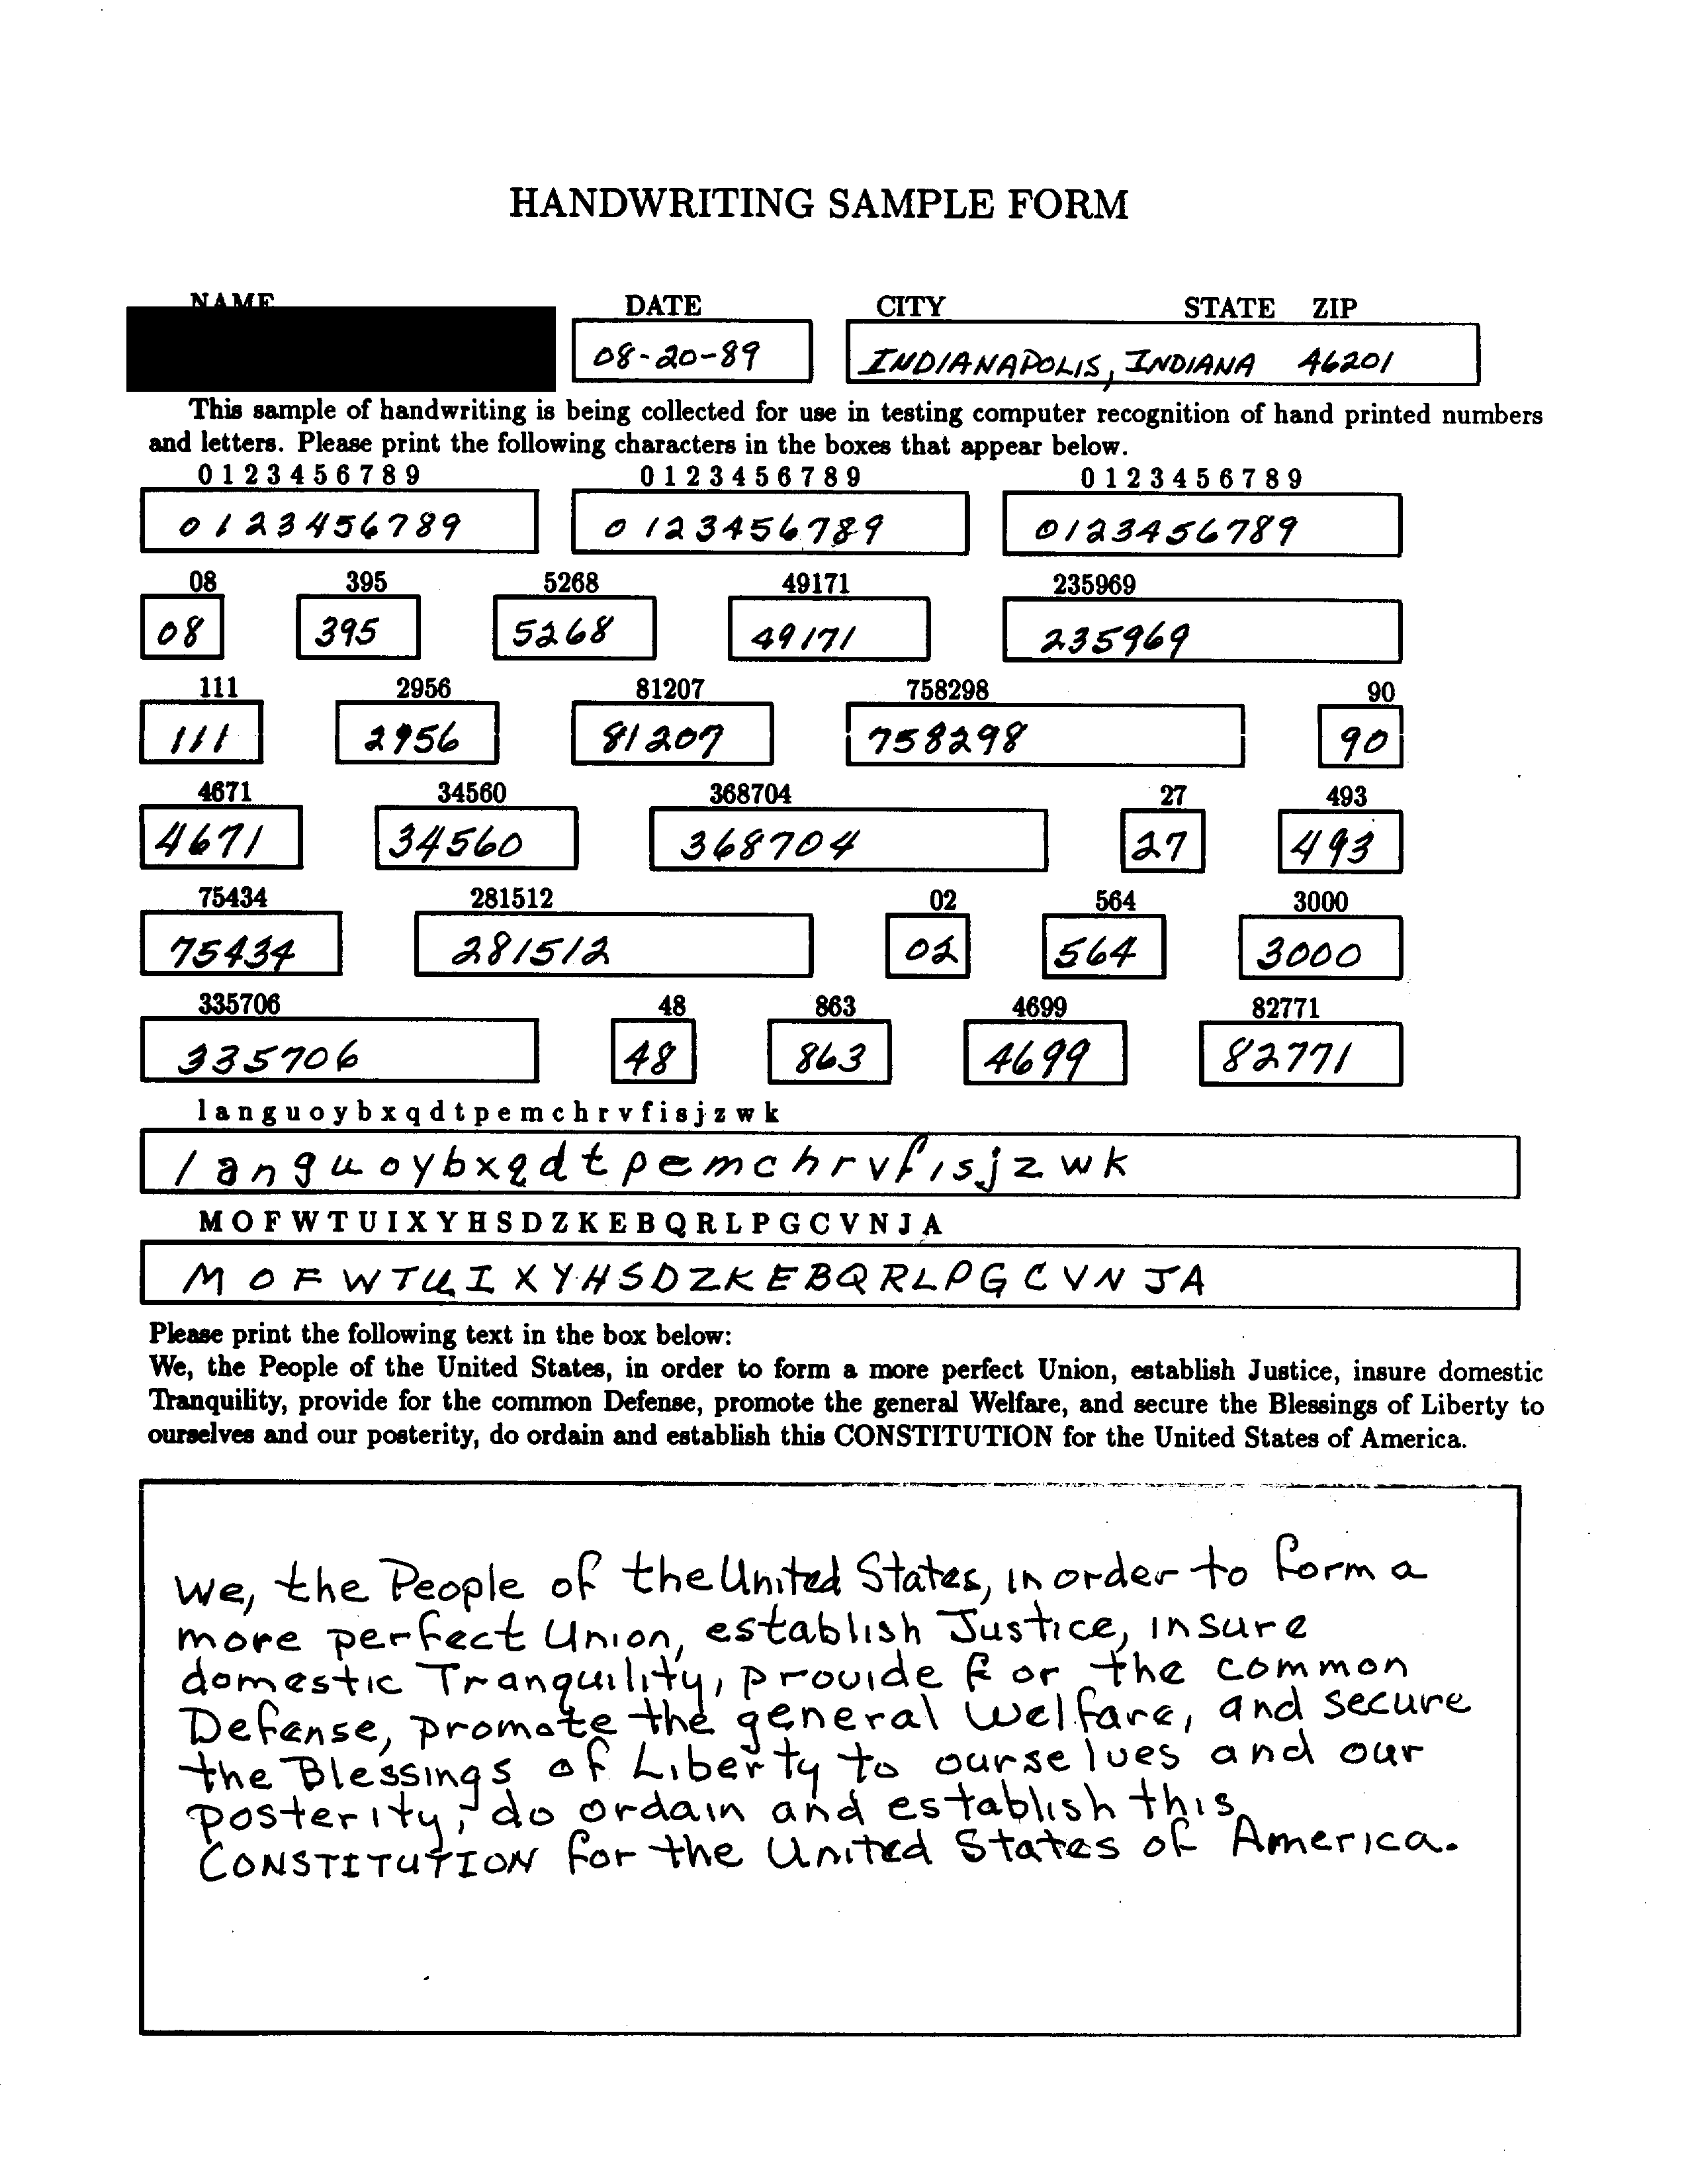 HANDWRITING SAMPLE FORM
NAME DATE CITY STATE ZIP
08-20-89 INDIANAPOLIS, INDIANA 46201
This sample of handwriting is being collected for use in testing computer recognition of hand printed numbers
and letters. Please print the following characters in the boxes that appear below.
0 1 2 3 4 5 6 7 8 9 0 1 2 3 4 5 6 7 8 9 0 1 2 3 4 5 6 7 8 9
0123456789 0123456789 0123456789
08 395 5268 49171 235969
08 395 5268 49171 235969
111 2956 81207 758298 90
111 2956 81207 758298 90
4671 34560 368704 27 493
4671 34560 368704 27 493
75434 281512 02 564 3000
75434 281512 02 564 3000
335706 48 863 4699 82771
335706 48 863 4699 82771
l a n g u o y b x q d t p e m c h r v f i s j z w k
l a n g u o y b x q d t p e m c h r v f i s j z w k
M O F W T U I X Y H S D Z K E B Q R L P G C V N J A
M O F W T U I X Y H S D Z K E B Q R L P G C V N J A
Please print the following text in the box below:
We, the People of the United States, in order to form a more perfect Union, establish Justice, insure domestic
Tranquility, provide for the common Defense, promote the general Welfare, and secure the Blessings of Liberty to
ourselves and our posterity, do ordain and establish this CONSTITUTION for the United States of America.
We, the People of the United States, in order to form a
more perfect Union, establish Justice, insure
domestic Tranquility, provide for the common
Defense, promote the general Welfare, and secure
the Blessings of Liberty to ourselves and our
posterity, do ordain and establish this
CONSTITUTION for the United States of America.